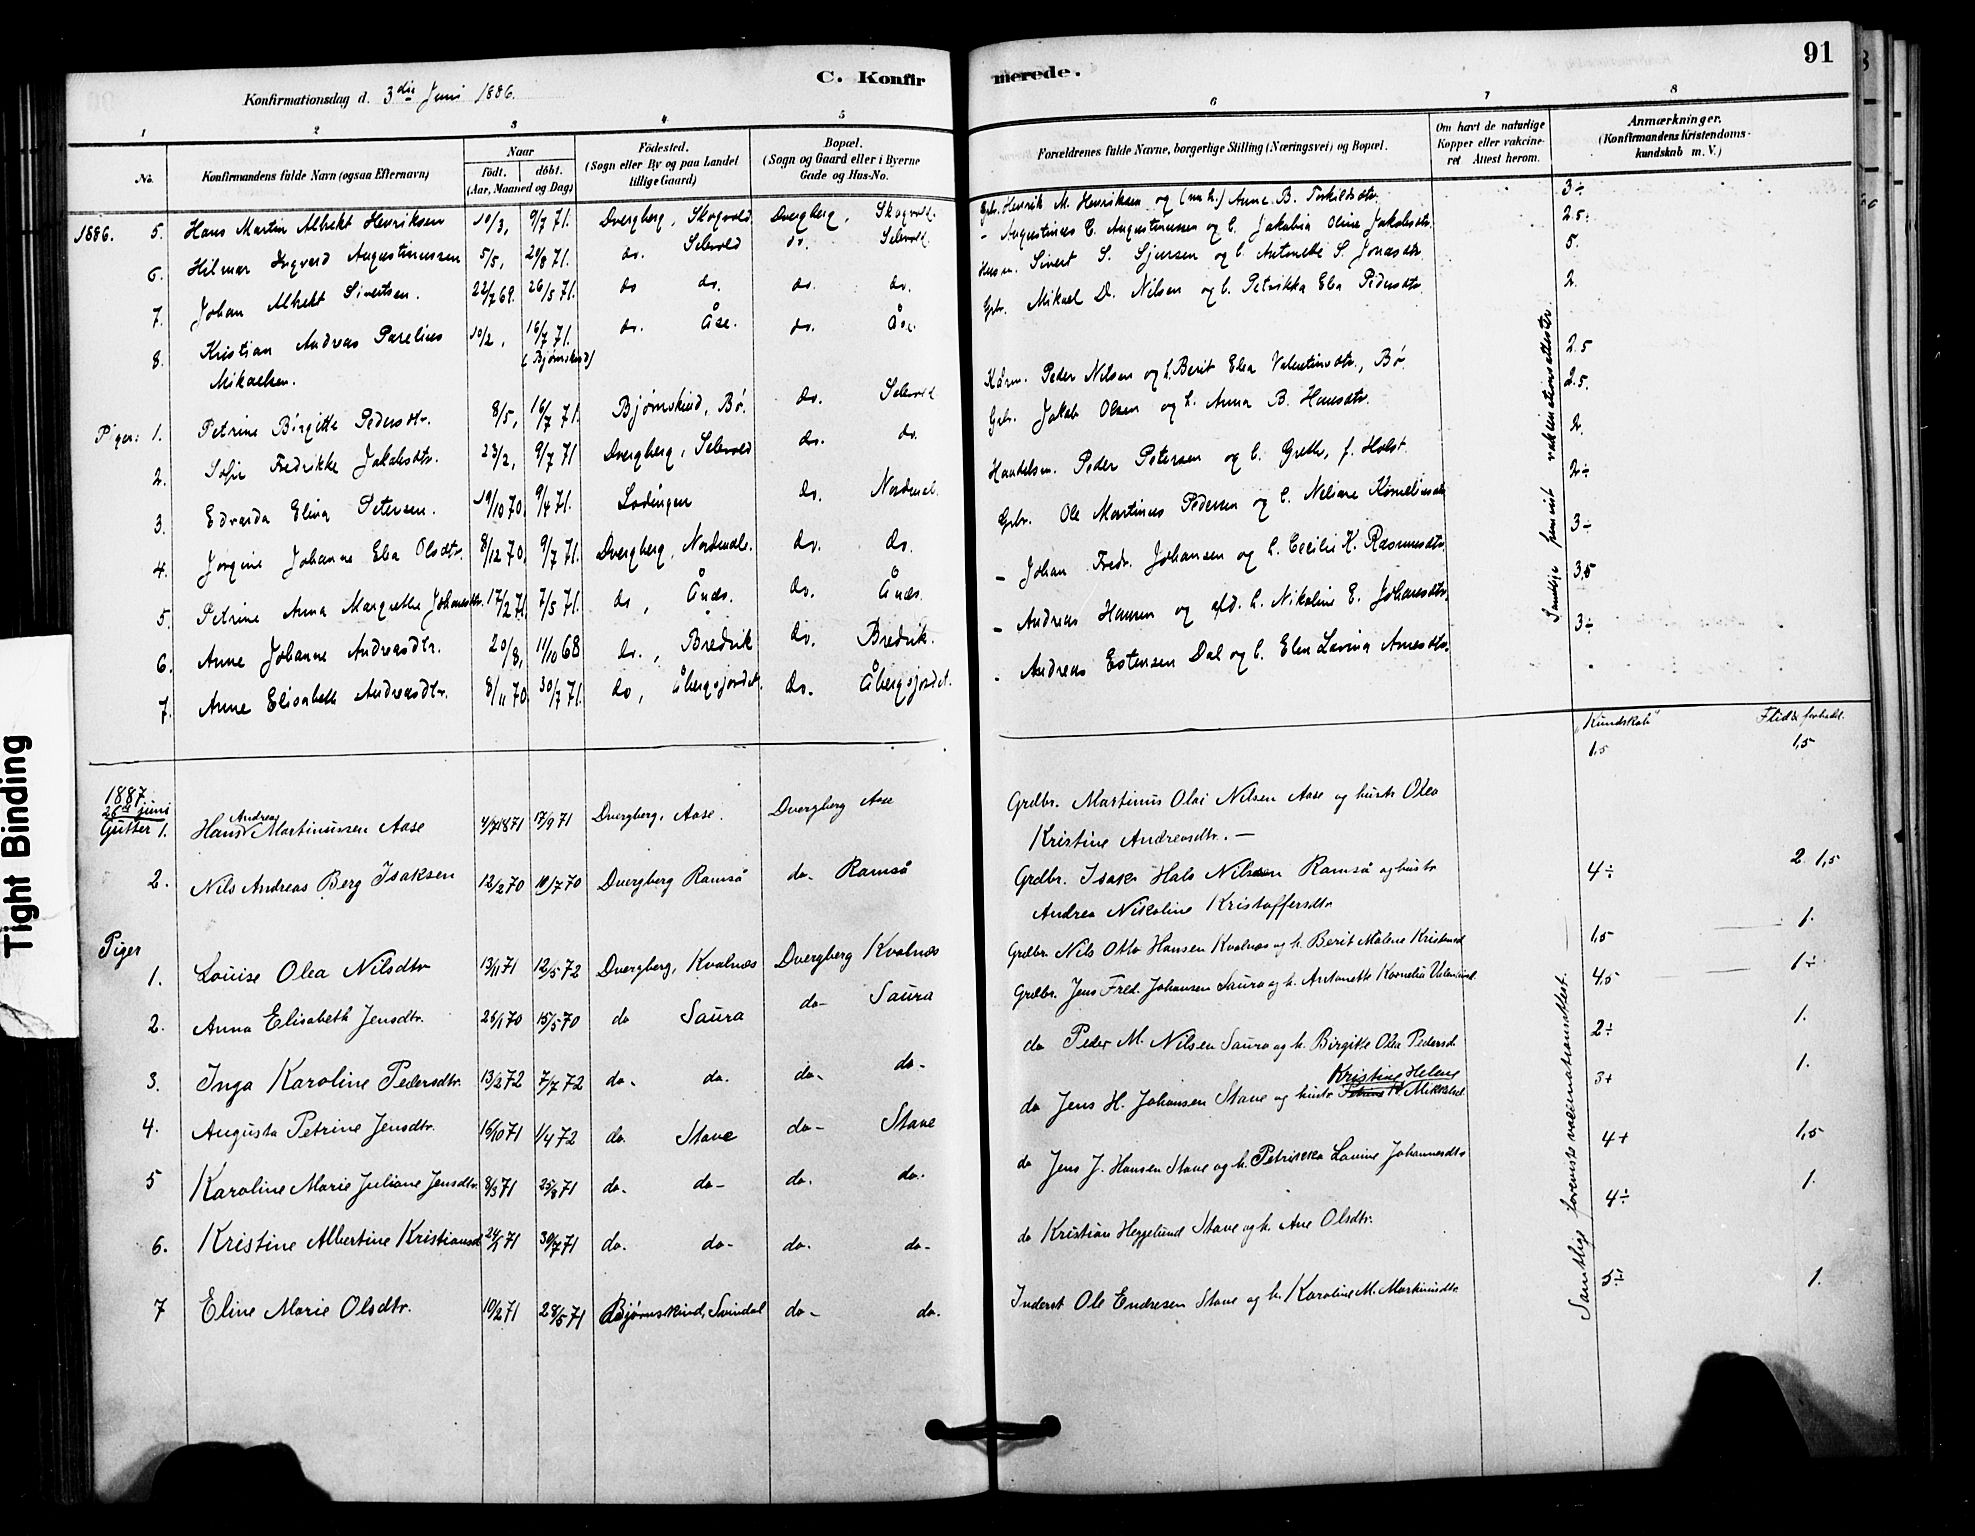 91
C. Konfirmerede.
Konfirmationsdag d. 3die Juni 1886.
1 2 3 4 5 6 7 8
No. Konfirmandens fulde Navn (ogsaa Efternavn) Naar födt. döbt. (Aar, Maaned og Dag) Födested. (Sogn eller By og paa Landet tillige Gaard) Bopæl. (Sogn og Gaard eller i Byerne Gade og Hus-No. Forældrenes fulde Navne, borgerlige Stilling (Næringsvei) og Bopæl. Om havt de naturlige Kopper eller vakcineret Attest herom. Anmærkninger. (Konfirmandens Kristendomskundskab m. V.)
1886. 5. Hans Martin Albrekt Henriksen 10/3, 9/7 71. Dvergberg, Skogvold Dvergberg, Skogvold. Gbr. Henrik M. Henriksen og Anne B. Torkildsdtr. 3÷
6. Hilmar Ingvard Augustinussen 5/5, 20/8 71. do. Selevold do. Selevold. - Augustinus C. Augustinussen og h. Jakobia Oline Jakobsdtr. 2.5.
7. Johan Albrekt Sivertsen. 22/7 69. 26/5 71. do do. do. do. Husm. Sivert S. Sjursen og h. Antonette S. Jonasdtr 5.
8. Kristian Andreas Parelius 10/2, 16/7 71. do. Åse. do. Åse. Gbr. Mikael D. Nilsen og h. Petrikka Elea Pedersdtr. 2.
Mikaelsen. (Bjørnskind)
Piger: 1. Petrine Birgitte Pedersdtr. 8/5, 16/7 71. Bjørnskind, Bø. do. Selevold Kårm. Peder Nilsen og h. Berit Elea Valentinsdtr., Bø. 2.5
2. Sofie Fredrikke Jakobsdtr. 23/2, 9/7 71 Dvergberg, Selevold do. do. Gbr. Jakob Olsen og h. Anna B. Hansdtr. 2.5.
3. Edvarda Elina Petersen. 19/10 70, 9/4 71. Lødingen do. Nordmel. Handelsm. Peder Petersen og h. Grethe, f. Holst. 2.
4. Jørgine Johanne Elea Olsdtr. 8/12 70, 9/7 71. Dvergberg, Nordmele. do. do. Gbr. Ole Martinus Pedersen og h. Neliane Kornelius 2÷
5. Petrine Anna Margrethe Johansdtr. 17/2 71. 7/5 71. do, Ånds. do. Ånds. - Johan Fredr. Johansen og h. Cecilie K. Rasmusdtr. 3÷
6. Anne Johanne Andreasdtr. 20/8, 11/10 68 do., Bredvik do. Bredvik. - Andreas Hansen og afd. h. Nikoline E. Johansdtr. 3,5
7. Anne Elisabeth Andreasdtr. 8/11 70 30/7 71. do, Åbergsjordet. do. Åbergsjordet. - Andreas Estensen Dal og h. Elen Lavina Arnesdtr. 3÷
Samtlige vakcinationsattester
"Kundskab" Flid & forhold.
1887 26de juni
Gutter 1. Hans Andreas Martinussen Aase 4/7 1871 17/9 71 Dvergberg, Aase. Dvergberg Aase Grdbr. Martinus Olai Nilsen Aase og hustr Olea 1,5 1,5
Kristine Andreasdtr. —
2. Nils Andreas Berg Isaksen 12/2 70 10/7 70 Dvergberg Ramså do- Ramså Grdbr. Isak Hals Nilssen Ramså og hustr 4÷ 2 1,5
Andrea Nikoline Kristoffersdtr
Piger
1. Louise Olea Nilsdtr 13/11 71 12/5 72 Dvergberg, Kvalnæs Dvergberg Kvalnæs Grdbr. Nils Otto Hansen Kvalnæs og h. Berit Malene 1,5 1.
2. Anna Elisabeth Jensdtr. 26/1 70 15/5 70 do Saura do- Saura Grdbr. Jens Fred. Johansen Saura og h. Antonette Kornelia 4,5 1÷
3. Inga Karoline Pedersdtr. 13/2 72 7/7 72 do- do. do- do- do Peder M. Nilsen Saura og h. Birgitte Olea Pedersd 2÷ 1.
4. Augusta Petrine Jensdtr. 16/10 71 1/4 72 do. Stave do- Stave do Jens H. Johansen Stave og hustr Kristine Helene Mikkelsd 3+ 1.
5 Karoline Marie Juliane Jensdtr. 8/3 71 25/8 71 do. do- do. do. do Jens J. Hansen Stave og h. Petrikka Lovine Johannesdtr 4+ 1,5
6. Kristine Albertine Kristiansd 24/1 71 30/7 71 do. do- do. do- do Kristian Heggelund Stave og h. Ane Olsdtr. 4÷ 1.
7 Eline Marie Olsdtr. 10/2 71 28/5 71 Bjørnskind, Svindal do- do. Inderst Ole Endresen Stave og h. Karoline M. Martinusdtr 5÷ 1.
Samtlige foreviste vakcinationsattest.
Tight Binding